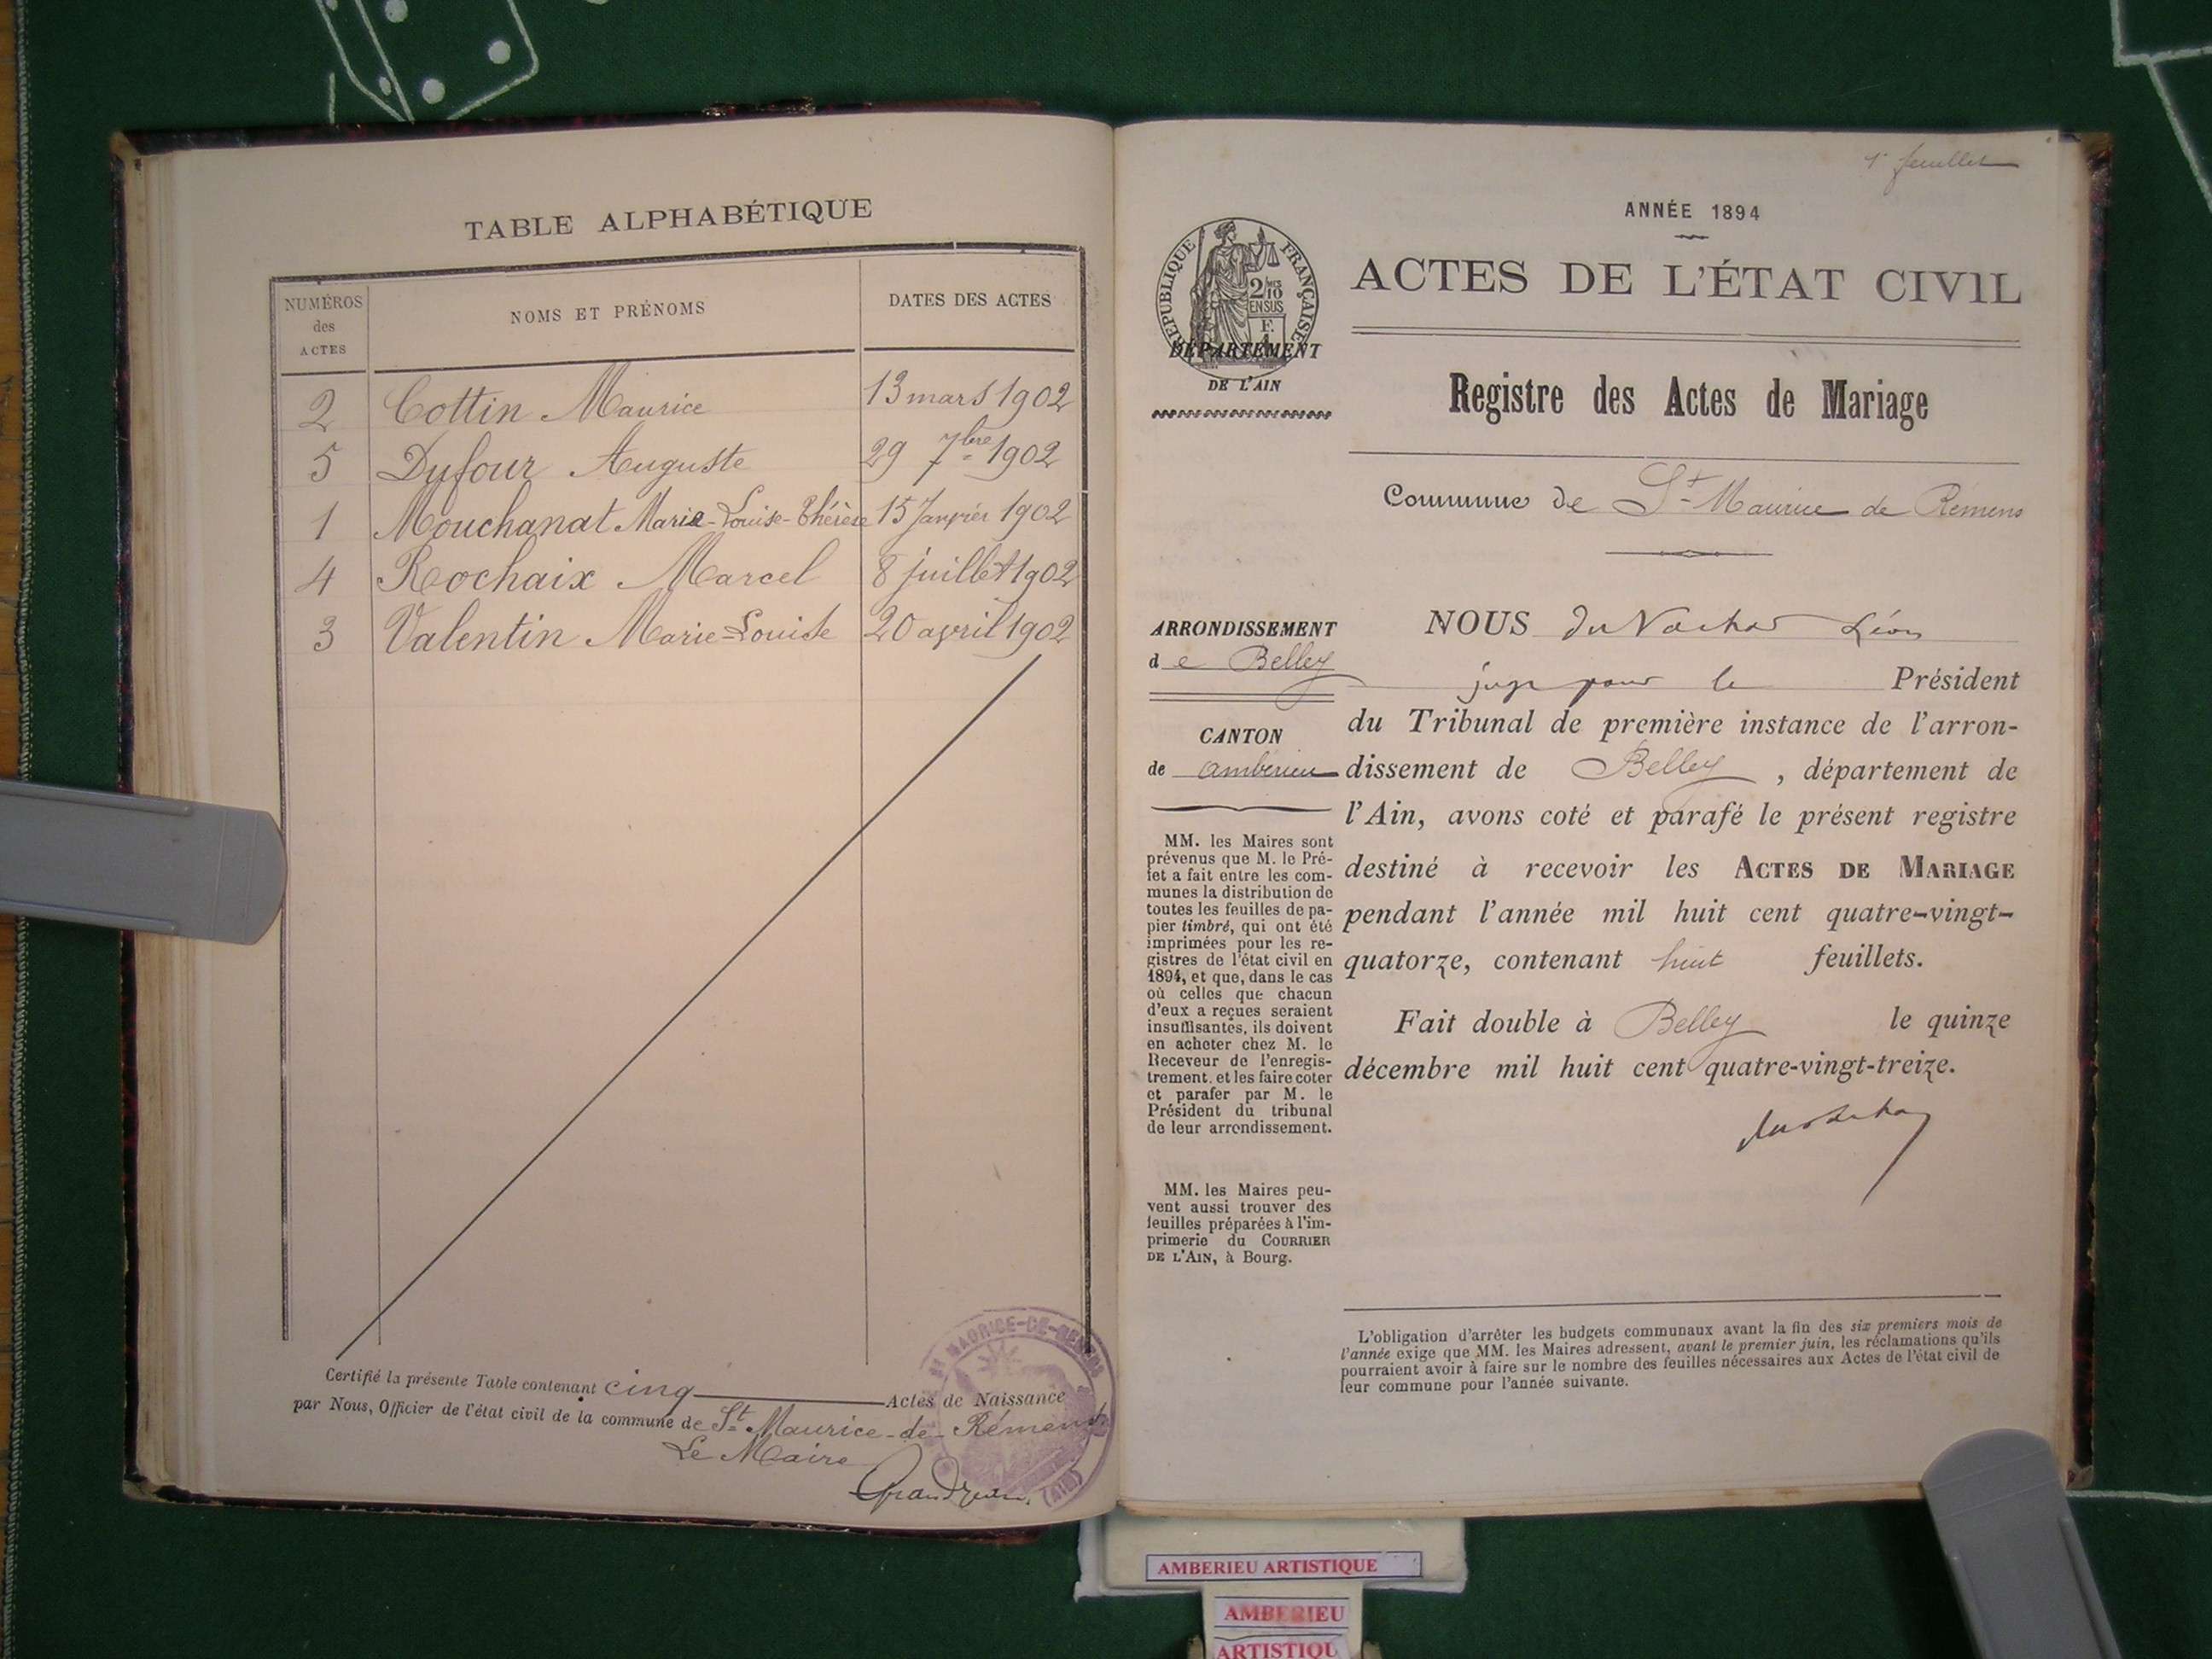 TABLE ALPHABÉTIQUE
NUMÉROS des ACTES
NOMS ET PRÉNOMS
DATES DES ACTES
2 Cottin Maurice 13 mars 1902
5 Dufour Auguste 29 7bre 1902
1 Mouchanat Marie-Louise-Thérèse 15 Janvier 1902
4 Rochaix Marcel 8 juillet 1902
3 Valentin Marie-Louise 20 avril 1902
Certifié la présente Table contenant cinq Actes de Naissance
par Nous, Officier de l'état civil de la commune de St Maurice-de-Rémens
Le Maire
Grandjean
ST MAURICE-DE-REMENS
(AIN)
1er feuillet
ANNÉE 1894
RÉPUBLIQUE FRANÇAISE
2/10
EN SUS
DÉPARTEMENT
DE L'AIN
ACTES DE L'ÉTAT CIVIL
Registre des Actes de Mariage
Commune de St-Maurice de Rémens
ARRONDISSEMENT
de Belley
CANTON
de Ambérieu
MM. les Maires sont
prévenus que M. le Pré-
fet a fait entre les com-
munes la distribution de
toutes les feuilles de pa-
pier timbré, qui ont été
imprimées pour les re-
gistres de l'état civil en
1894, et que, dans le cas
où celles que chacun
d'eux a reçues seraient
insuffisantes, ils doivent
en acheter chez M. le
Receveur de l'enregis-
trement, et les faire coter
et parafer par M. le
Président du tribunal
de leur arrondissement.
MM. les Maires peu-
vent aussi trouver des
feuilles préparées à l'im-
primerie du COURRIER
DE L'AIN, à Bourg.
NOUS Léon
juge pour le Président
du Tribunal de première instance de l'arron-
dissement de Belley, département de
l'Ain, avons coté et parafé le présent registre
destiné à recevoir les ACTES DE MARIAGE
pendant l'année mil huit cent quatre-vingt-
quatorze, contenant huit feuillets.
Fait double à Belley le quinze
décembre mil huit cent quatre-vingt-treize.
L'obligation d'arrêter les budgets communaux avant la fin des six premiers mois de
l'année exige que MM. les Maires adressent, avant le premier juin, les réclamations qu'ils
pourraient avoir à faire sur le nombre des feuilles nécessaires aux Actes de l'état civil de
leur commune pour l'année suivante.
AMBERIEU ARTISTIQUE
AMBERIEU
ARTISTIQU